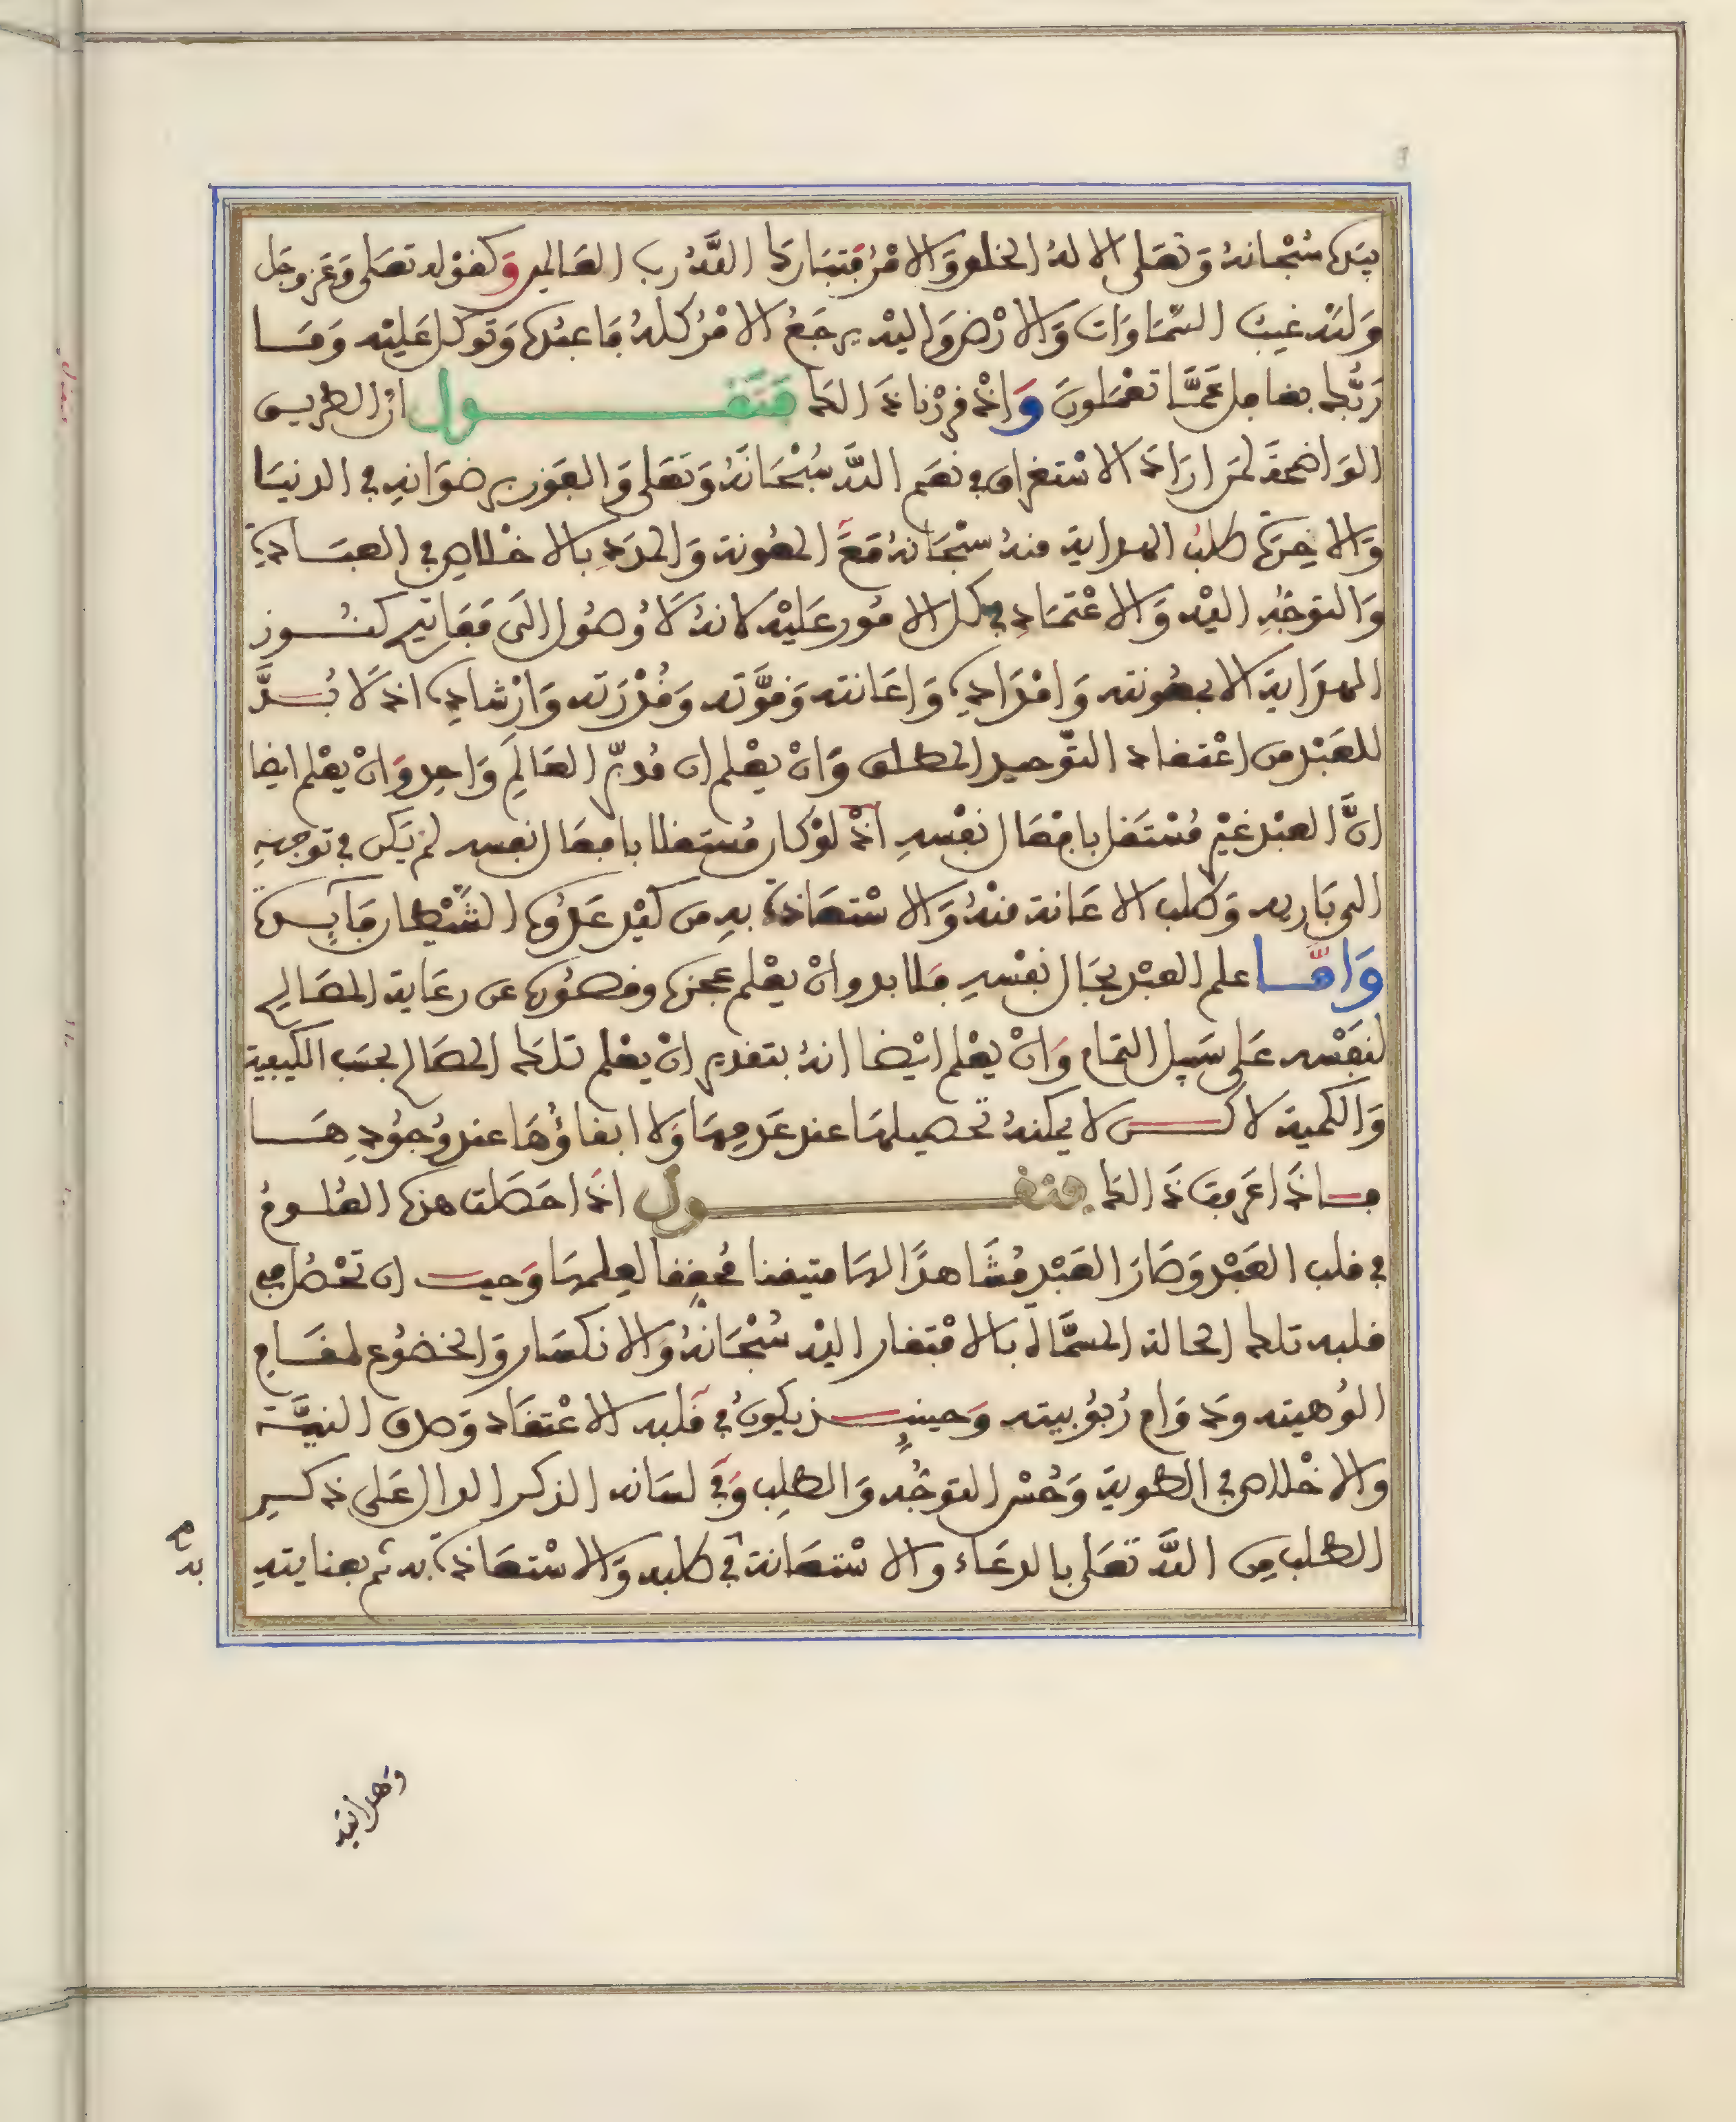 بيده سبحانه وتعلى الا له الخلق والامر فتبارك الله رب العالمين وكقوله تعلى وعز وجل
ولله غيب السماوات والارض واليه يرجع الامر كله فاعبده وتوكل عليه وما
ربك بغافل عما تعملون واذ قررنا ذالك فنقول ان الطريق
الواضحة لمن اراد الاستغراق في نعم الله سبحانه وتعلى والفوز برضوانه في الدنيا
والاخرة طلب الهداية منه سبحانه مع المعونة والمدد بالاخلاص في العبادة
والتوجه اليه والاعتماد في كل الامور عليه لانه لا وصول الى مفاتيح كنوز
الهداية الا بمعونته وامداده واعانته وقوته وقدرته وارشاده اذ لا بد
للعبد من اعتقاد التوحيد المطلق وان يعلم ان مدبر العالم واحد وان يعلم ايضا
ان العبد غير مستقل بافعال نفسه اذ لو كان مستقلا بافعال نفسه لم يكن في توجهه
الى باريه وطلب الاعانة منه والاستعاذة به من كيد عدوه الشيطان فايدة
واما علم العبد بحال نفسه فلا بد وان يعلم عجزه وقصوره عن رعاية المصالح
لنفسه على سبيل التمام وان يعلم ايضا انه بتقدير ان يعلم تلك المصالح بحسب الكيفية
والكمية لاكن لا يمكنه تحصيلها عند عدمها ولا ابقاؤها عند وجودها
فاذا عرفت ذالك فنقول اذا حصلت هذه العلوم
في قلب العبد وصار العبد مشاهدا لها متيقنا محققا لعلمها وجب ان تحصل في
قلبه تلك الحالة المسماة بالافتقار اليه سبحانه والانكسار والخضوع لمقام
الوهيته ودوام ربوبيته وحينئذ يكون في قلبه الاعتقاد وصدق النية
والاخلاص في الطوية وحسن التوجه والطلب وفي لسانه الذكر الدال على ذكر
الطلب من الله تعلى بالدعاء والاستعانة في طلبه والاستعاذة به ثم بعنايته
وهدايته